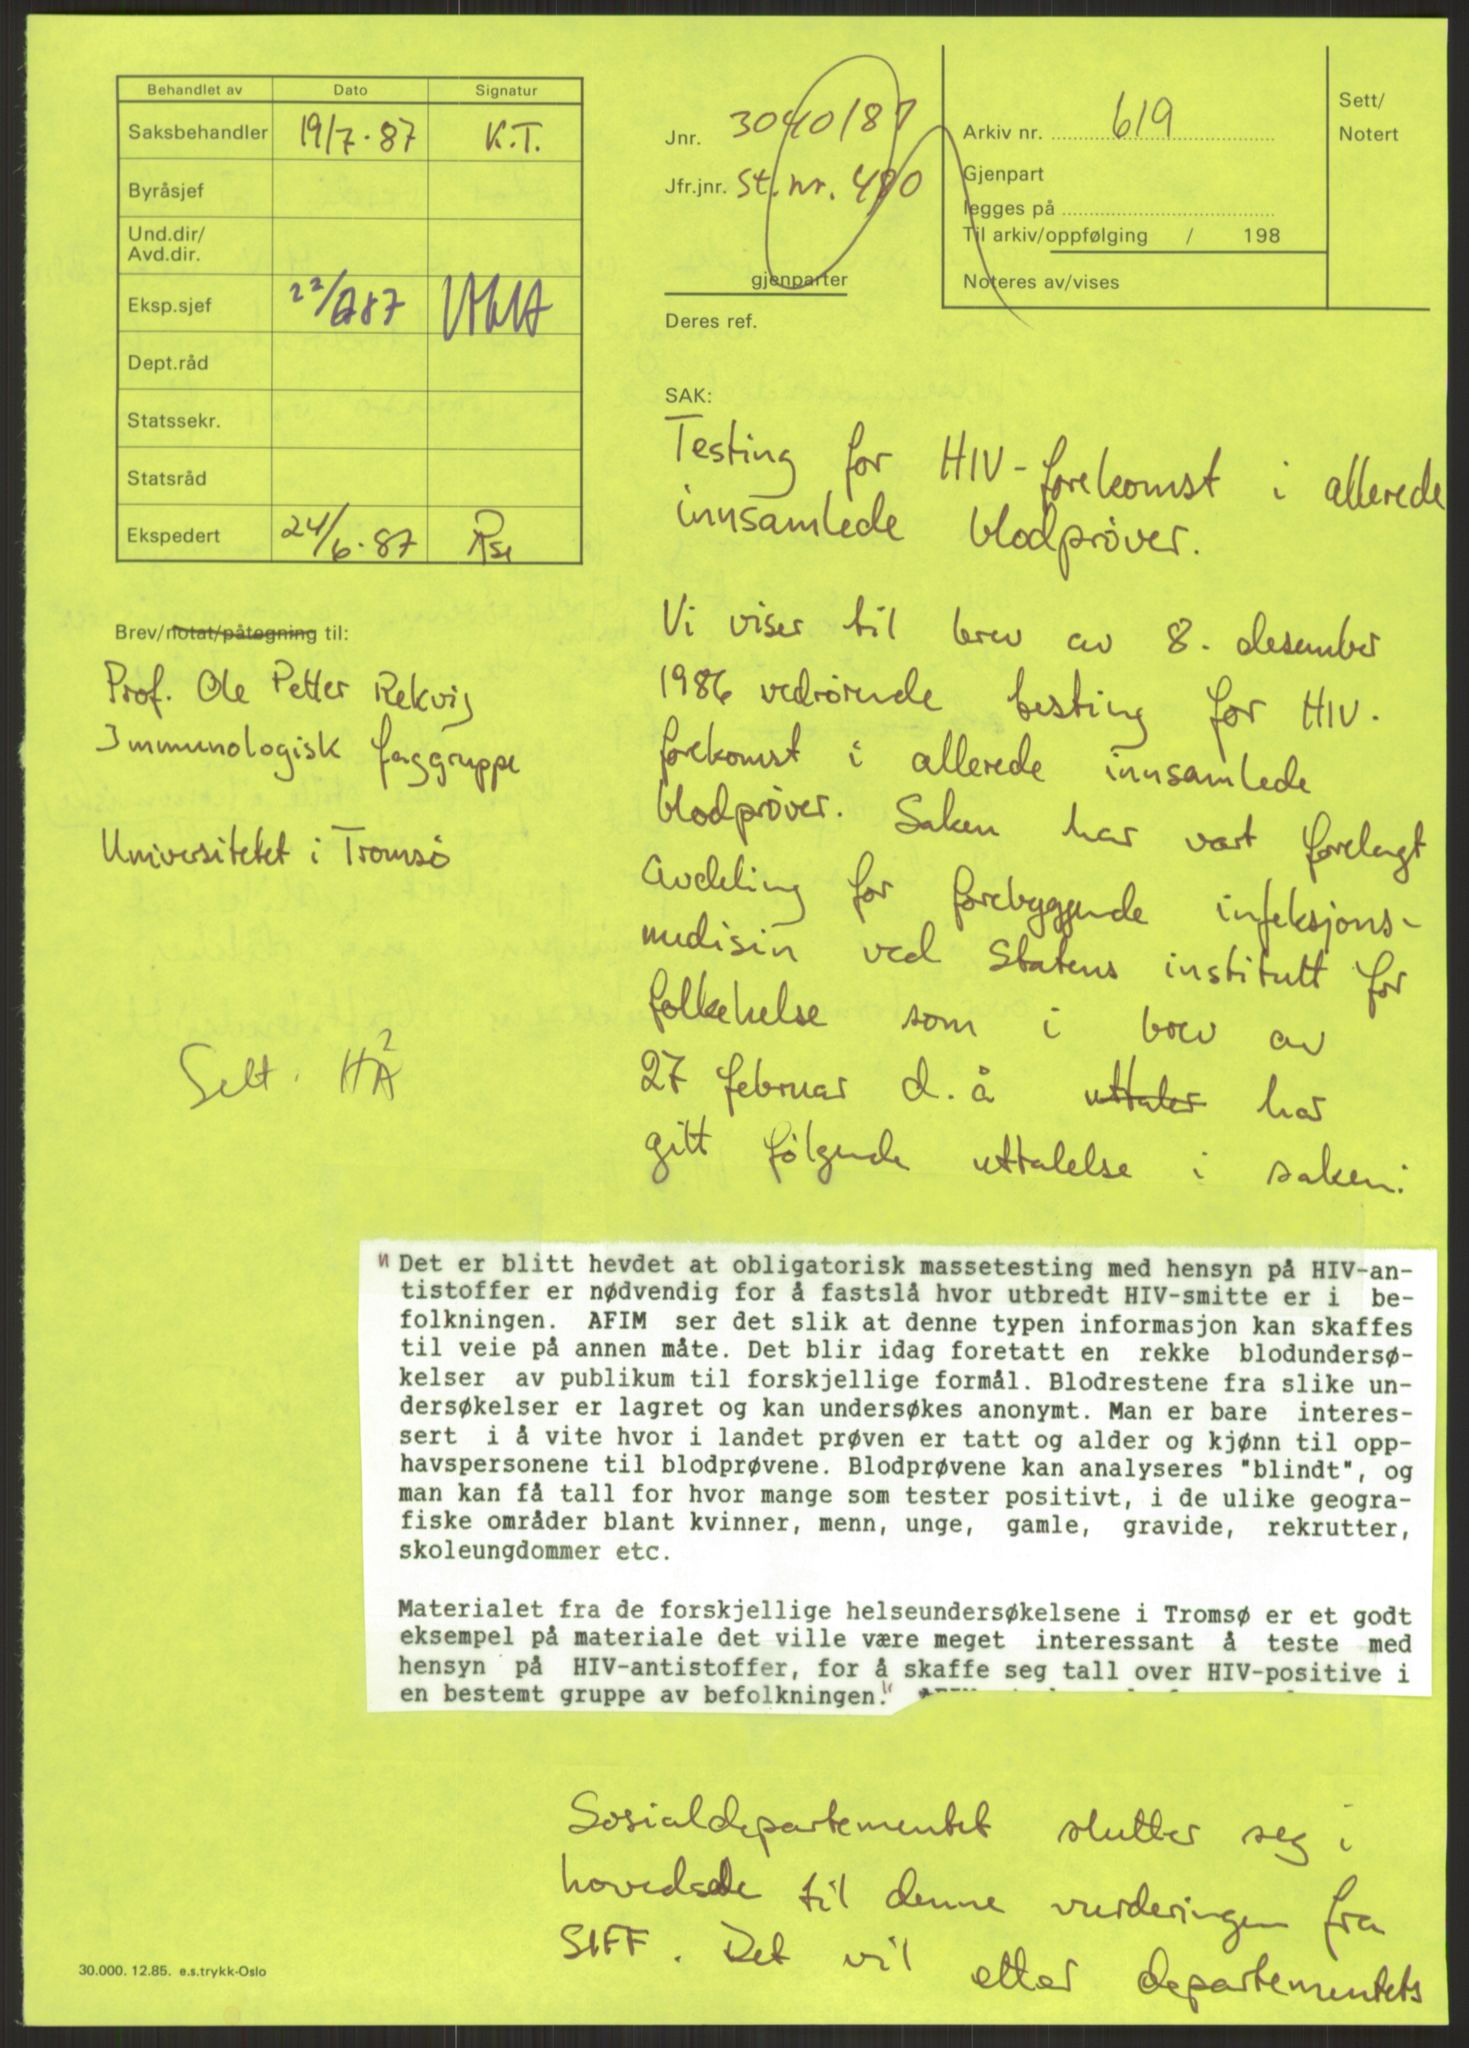 Behandlet av Dato Signatur
Saksbehandler 19/7-87 K.T.
Byråsjef
Und.dir/
Avd.dir.
Eksp.sjef 22/ 87
Dept.råd
Statssekr.
Statsråd
Ekspedert 24/6-87
Jnr. 3040/87
Jfr.jnr. St.nr. 490
gjenparter
Deres ref.
Arkiv nr. 619
Gjenpart
legges på
Til arkiv/oppfølging / 198
Noteres av/vises
Sett/
Notert
Brev/notat/påtegning til:
Prof. Ole Petter Rekvig
Immunologisk faggruppe
Universitetet i Tromsø
Sett. HÅ²
SAK:
Testing for HIV-forekomst i allerede
innsamlede blodprøver.
Vi viser til brev av 8. desember
1986 vedrørende testing for HIV-
forekomst i allerede innsamlede
blodprøver. Saken har vært forelagt
Avdeling for forebyggende infeksjons-
medisin ved Statens institutt for
folkehelse som i brev av
27 februar d.å uttaler har
gitt følgende uttalelse i saken:
"Det er blitt hevdet at obligatorisk massetesting med hensyn på HIV-an-
tistoffer er nødvendig for å fastslå hvor utbredt HIV-smitte er i be-
folkningen. AFIM ser det slik at denne typen informasjon kan skaffes
til veie på annen måte. Det blir idag foretatt en rekke blodundersø-
kelser av publikum til forskjellige formål. Blodrestene fra slike un-
dersøkelser er lagret og kan undersøkes anonymt. Man er bare interes-
sert i å vite hvor i landet prøven er tatt og alder og kjønn til opp-
havspersonene til blodprøvene. Blodprøvene kan analyseres "blindt", og
man kan få tall for hvor mange som tester positivt, i de ulike geogra-
fiske områder blant kvinner, menn, unge, gamle, gravide, rekrutter,
skoleungdommer etc.
Materialet fra de forskjellige helseundersøkelsene i Tromsø er et godt
eksempel på materiale det ville være meget interessant å teste med
hensyn på HIV-antistoffer, for å skaffe seg tall over HIV-positive i
en bestemt gruppe av befolkningen."
Sosialdepartementet slutter seg i
hovedsak til denne vurderingen fra
SIFF. Det vil etter departementets
30.000. 12.85. e.s.trykk-Oslo